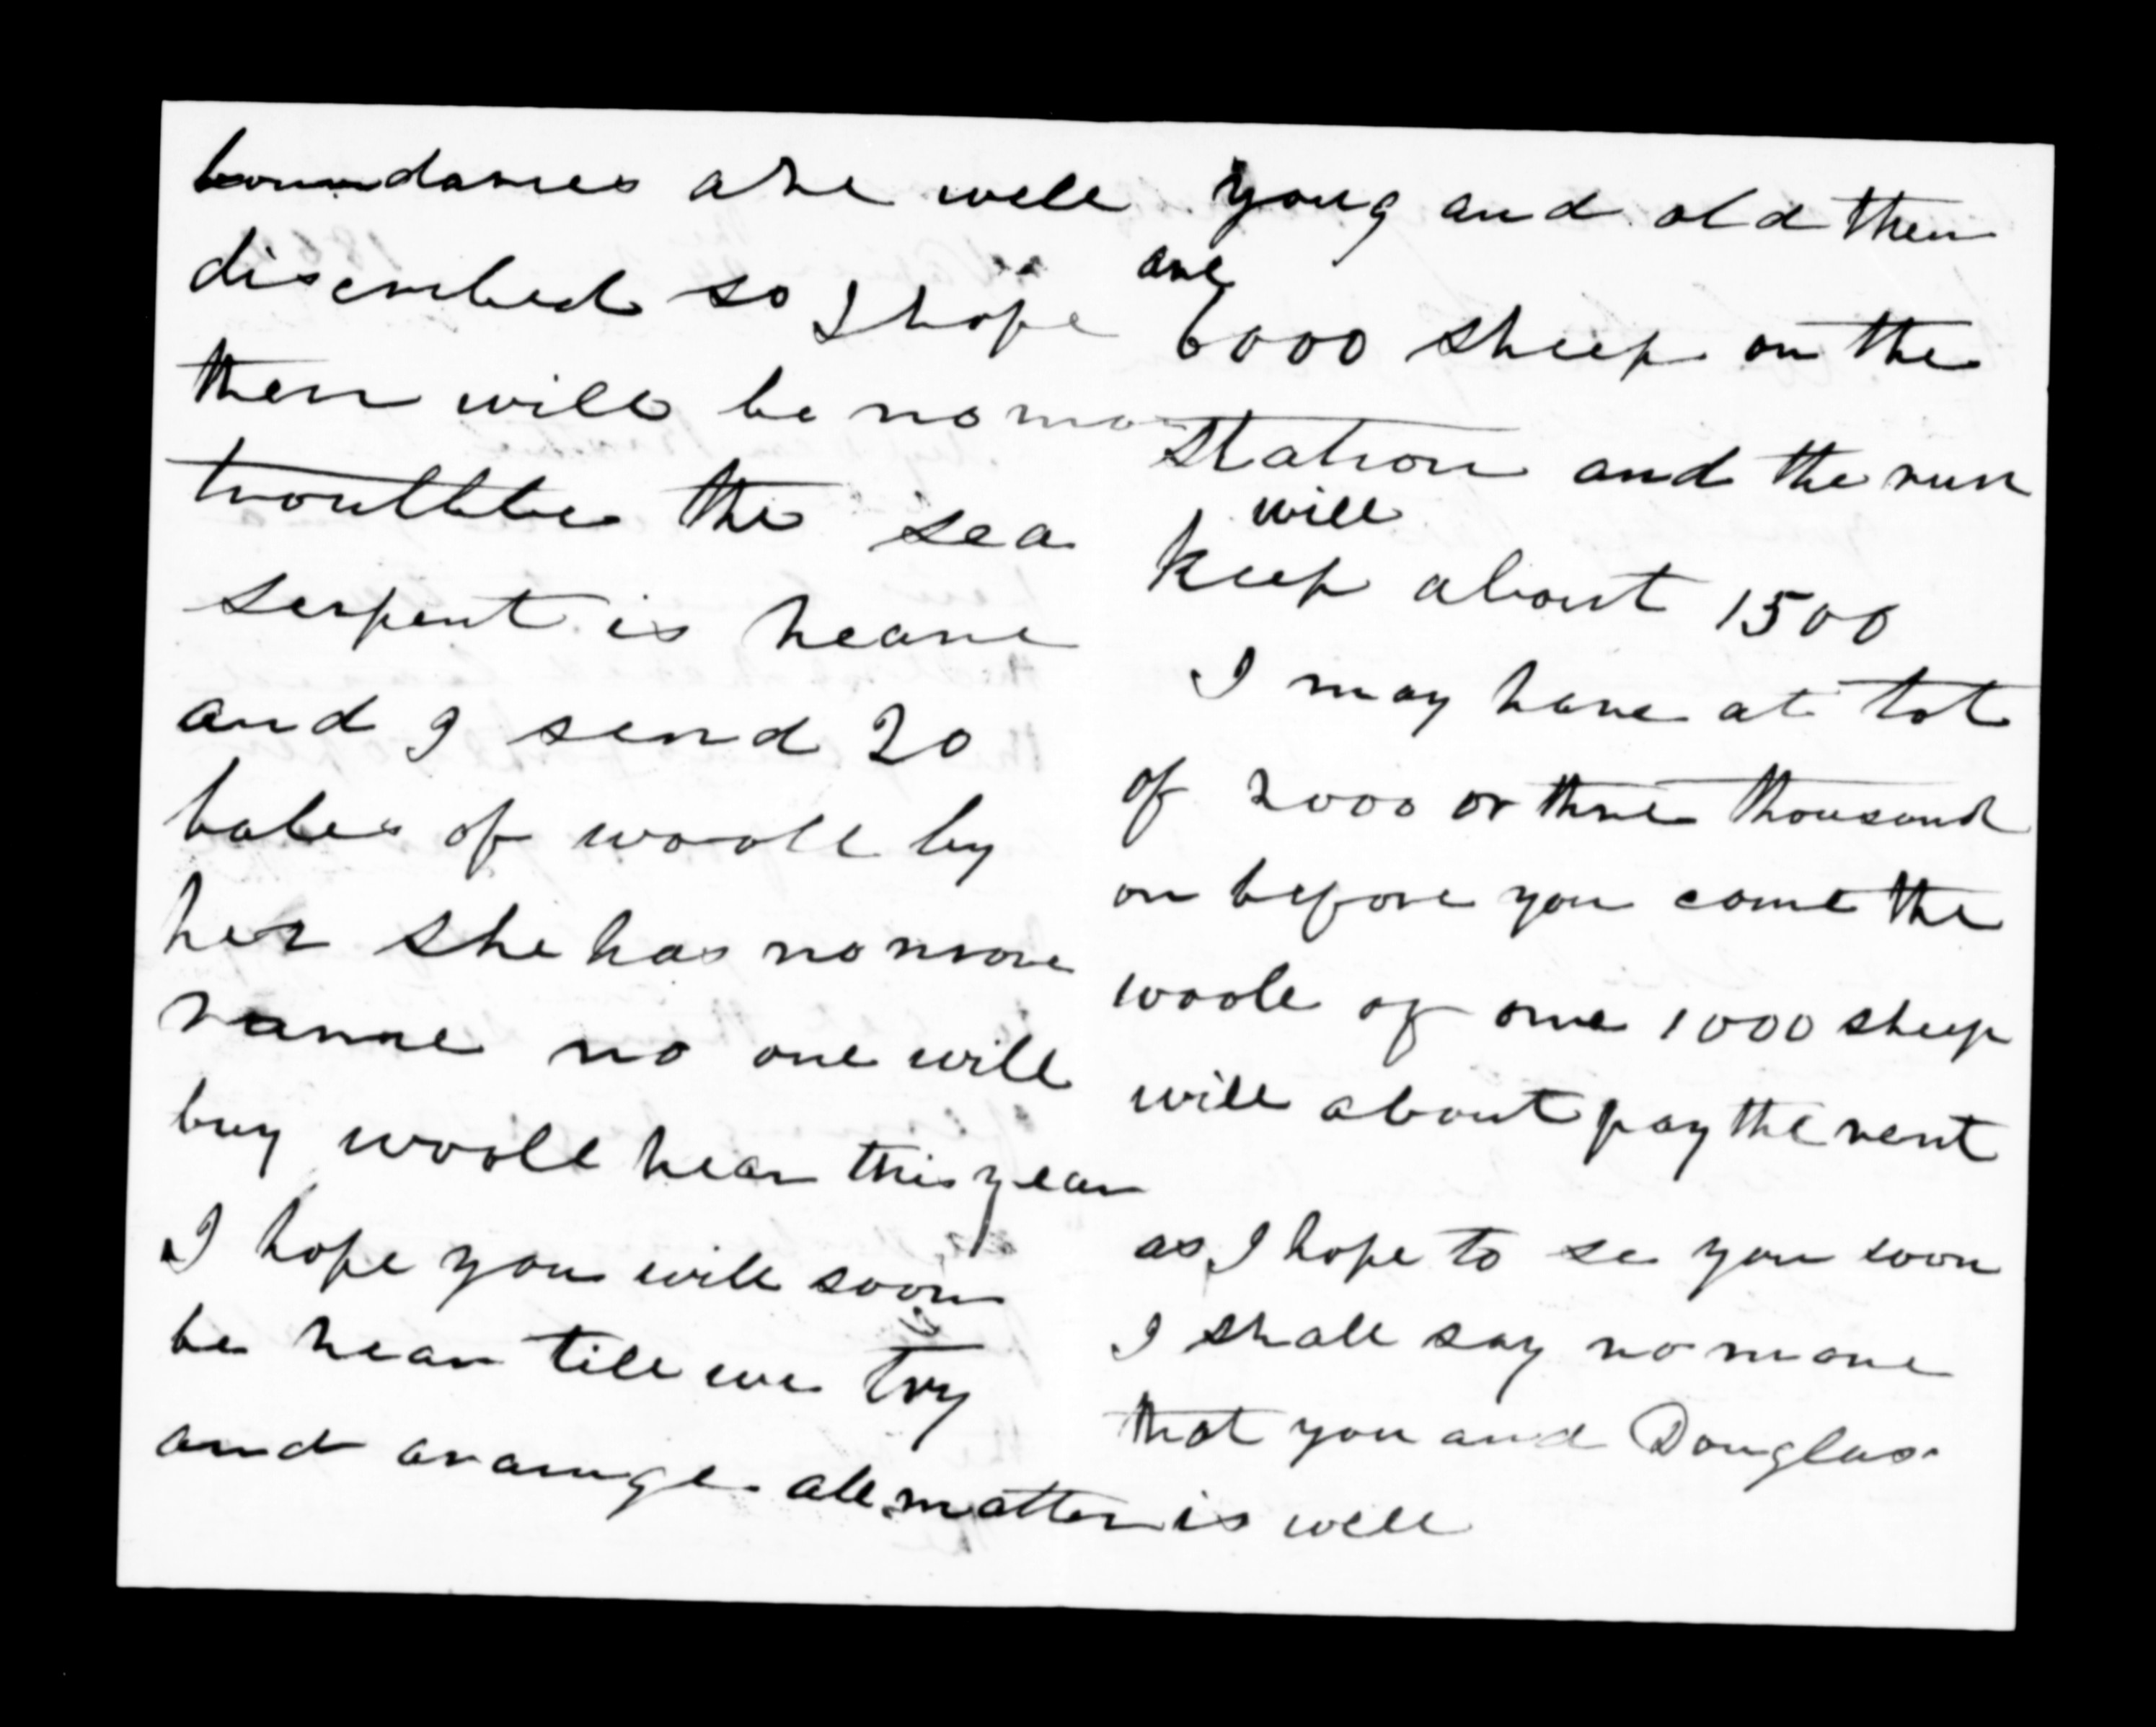 boundaries are well
discribed so I hope
ther will be no mo
troutble the sea
serpent is heare
and I send 20
bales of wooll by
her she has no more
name no one will
buy wooll hear this year
I hope you will soon
be hear till we try
and arange all matter is well
youg and old ther
are
6000 sheep on the
station and the run
will
keep about 1500
I may have at tot
of 2000 or three thousand
on before you come the
woole of one 1000 sheep
will about pay the rent
as I hope to se you soon
I shall say no more
that you and Douglas